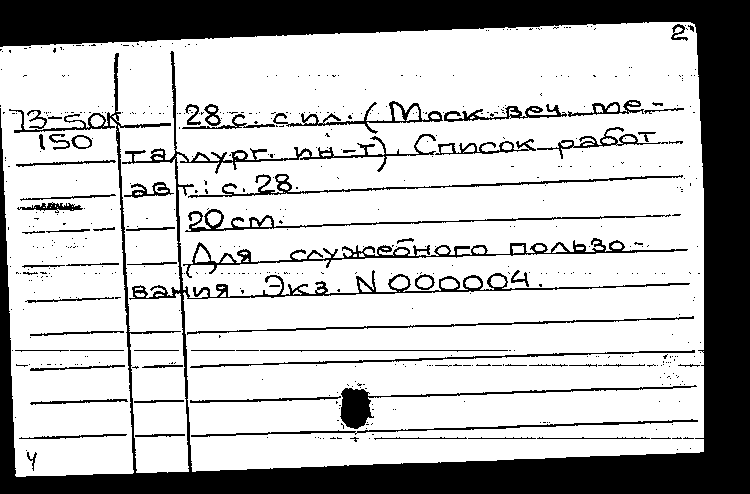 2
73-50К 28 с. с ил. (Моск. веч. ме-
150
таллург. ин-т). Список работ
авт.: с. 28.
20 см.
Для служебного пользо-
вания. Экз. N 000004.